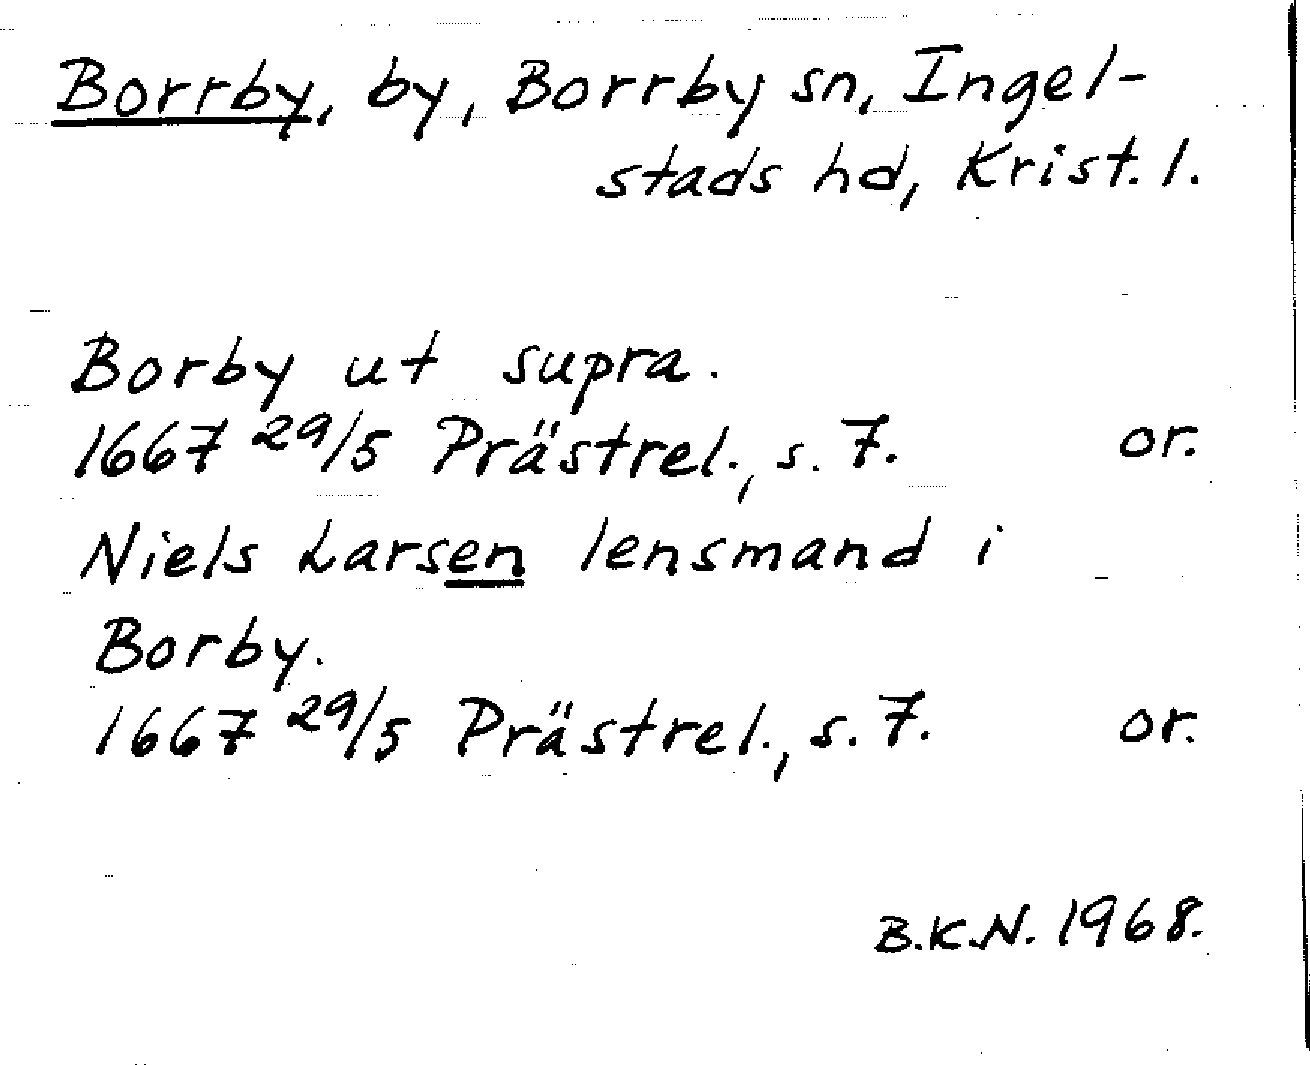 Borrby, by, Borrby sn, Ingel-
stads hd, Krist. l.
Borby ut supra.
1667 29/5 Prästrel., s. 7. or.
Niels Larsen lensmand i
Borby.
1667 29/5 Prästrel., s. 7. or.
B.K.N. 1968.